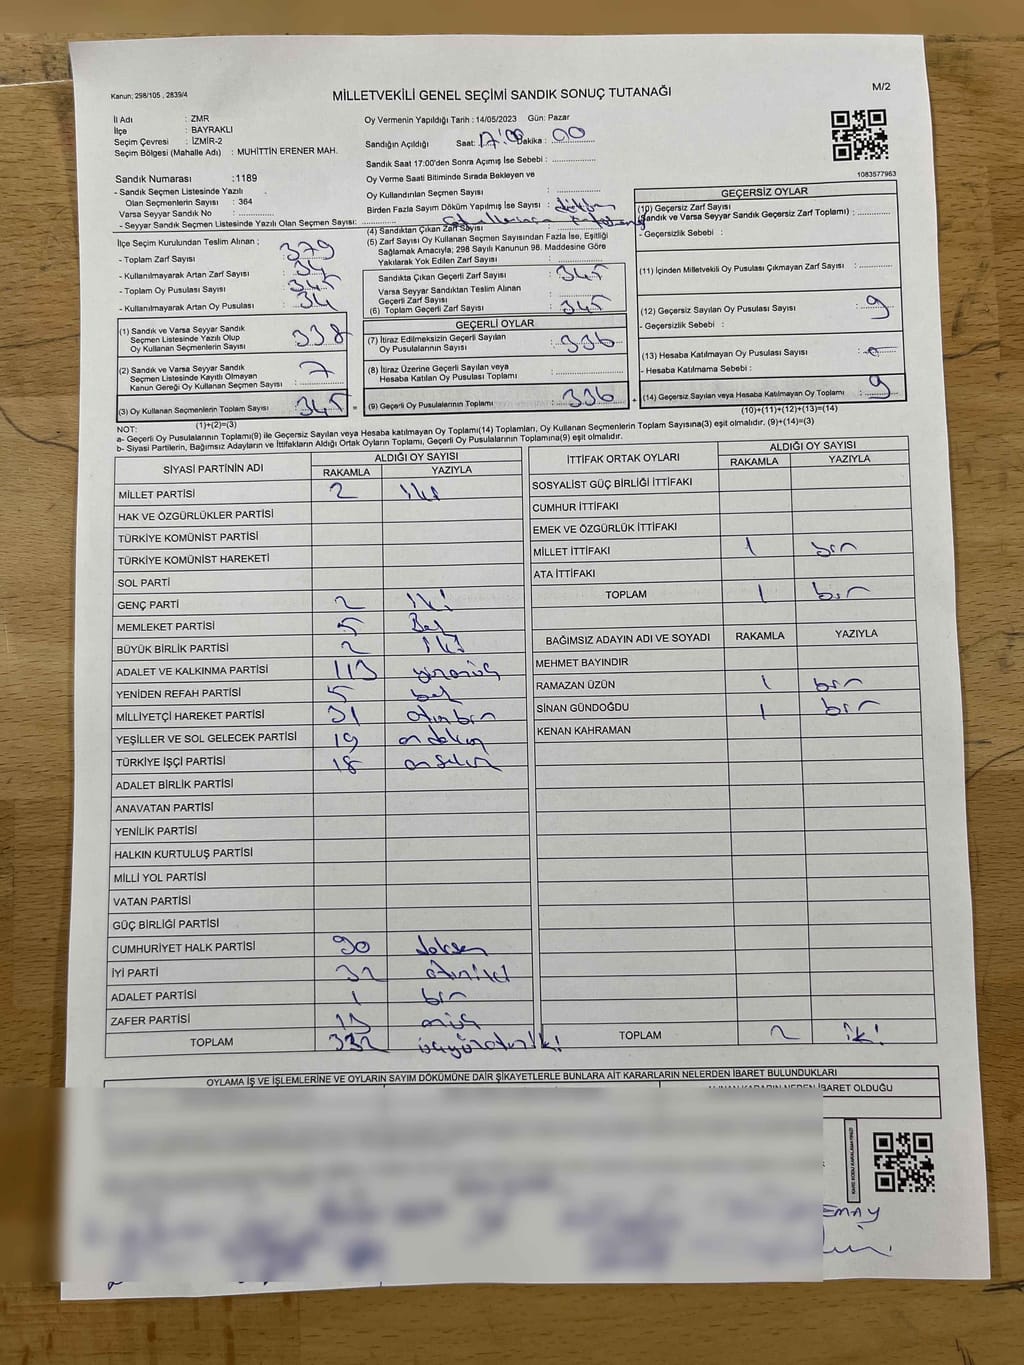 Kanun; 298/105 , 2839/4
MİLLETVEKİLİ GENEL SEÇİMİ SANDIK SONUÇ TUTANAĞI
M/2
İl Adı : ZMR
İlçe : BAYRAKLI
Seçim Çevresi : İZMİR-2
Seçim Bölgesi (Mahalle Adı) : MUHİTTİN ERENER MAH.
Oy Vermenin Yapıldığı Tarih : 14/05/2023 Gün: Pazar
Sandığın Açıldığı Saat: 17:00 Dakika : 00
Sandık Saat 17:00'den Sonra Açımış İse Sebebi :
Oy Verme Saati Bitiminde Sırada Bekleyen ve
Oy Kullandırılan Seçmen Sayısı :
Birden Fazla Sayım Döküm Yapılmış İse Sayısı :
1083577963
Sandık Numarası :1189
- Sandık Seçmen Listesinde Yazılı
Olan Seçmenlerin Sayısı : 364
Varsa Seyyar Sandık No :
- Seyyar Sandık Seçmen Listesinde Yazılı Olan Seçmen Sayısı:
İlçe Seçim Kurulundan Teslim Alınan ;
- Toplam Zarf Sayısı : 379
- Kullanılmayarak Artan Zarf Sayısı : 34
- Toplam Oy Pusulası Sayısı : 345
- Kullanılmayarak Artan Oy Pusulası : 34
(1) Sandık ve Varsa Seyyar Sandık
Seçmen Listesinde Yazılı Olup
Oy Kullanan Seçmenlerin Sayısı : 338
(2) Sandık ve Varsa Seyyar Sandık
Seçmen Listesinde Kayıtlı Olmayan
Kanun Gereği Oy Kullanan Seçmen Sayısı : 7
(3) Oy Kullanan Seçmenlerin Toplam Sayısı : 345
(1)+(2)=(3)
(4) Sandıktan Çıkan Zarf Sayısı :
(5) Zarf Sayısı Oy Kullanan Seçmen Sayısından Fazla İse, Eşitliği
Sağlamak Amacıyla; 298 Sayılı Kanunun 98. Maddesine Göre
Yakılarak Yok Edilen Zarf Sayısı :
Sandıkta Çıkan Geçerli Zarf Sayısı : 345
Varsa Seyyar Sandıktan Teslim Alınan
Geçerli Zarf Sayısı :
(6) Toplam Geçerli Zarf Sayısı : 345
GEÇERLİ OYLAR
(7) İtiraz Edilmeksizin Geçerli Sayılan
Oy Pusulalarının Sayısı : 336
(8) İtiraz Üzerine Geçerli Sayılan veya
Hesaba Katılan Oy Pusulası Toplamı :
= (9) Geçerli Oy Pusulalarının Toplamı : 336
GEÇERSİZ OYLAR
(10) Geçersiz Zarf Sayısı
(Sandık ve Varsa Seyyar Sandık Geçersiz Zarf Toplamı) :
- Geçersizlik Sebebi :
(11) İçinden Milletvekili Oy Pusulası Çıkmayan Zarf Sayısı :
(12) Geçersiz Sayılan Oy Pusulası Sayısı : 9
- Geçersizlik Sebebi :
(13) Hesaba Katılmayan Oy Pusulası Sayısı :
- Hesaba Katılmama Sebebi :
+ (14) Geçersiz Sayılan veya Hesaba Katılmayan Oy Toplamı : 9
(10)+(11)+(12)+(13)=(14)
NOT:
a- Geçerli Oy Pusulalarının Toplamı(9) ile Geçersiz Sayılan veya Hesaba katılmayan Oy Toplamı(14) Toplamları, Oy Kullanan Seçmenlerin Toplam Sayısına(3) eşit olmalıdır. (9)+(14)=(3)
b- Siyasi Partilerin, Bağımsız Adayların ve İttifakların Aldığı Ortak Oyların Toplamı, Geçerli Oy Pusulalarının Toplamına(9) eşit olmalıdır.
SİYASİ PARTİNİN ADI
ALDIĞI OY SAYISI
RAKAMLA YAZIYLA
MİLLET PARTİSİ 2 iki
HAK VE ÖZGÜRLÜKLER PARTİSİ
TÜRKİYE KOMÜNİST PARTİSİ
TÜRKİYE KOMÜNİST HAREKETİ
SOL PARTİ
GENÇ PARTİ 2 iki
MEMLEKET PARTİSİ 5 Beş
BÜYÜK BİRLİK PARTİSİ 2 iki
ADALET VE KALKINMA PARTİSİ 113 yüzonüç
YENİDEN REFAH PARTİSİ 5 beş
MİLLİYETÇİ HAREKET PARTİSİ 31 otuzbir
YEŞİLLER VE SOL GELECEK PARTİSİ 19 ondokuz
TÜRKİYE İŞÇİ PARTİSİ 18 onsekiz
ADALET BİRLİK PARTİSİ
ANAVATAN PARTİSİ
YENİLİK PARTİSİ
HALKIN KURTULUŞ PARTİSİ
MİLLİ YOL PARTİSİ
VATAN PARTİSİ
GÜÇ BİRLİĞİ PARTİSİ
CUMHURİYET HALK PARTİSİ 90 doksan
İYİ PARTİ 32 otuziki
ADALET PARTİSİ 1 bir
ZAFER PARTİSİ 13 onüç
TOPLAM 332 üçyüzotuziki
İTTİFAK ORTAK OYLARI
ALDIĞI OY SAYISI
RAKAMLA YAZIYLA
SOSYALİST GÜÇ BİRLİĞİ İTTİFAKI
CUMHUR İTTİFAKI
EMEK VE ÖZGÜRLÜK İTTİFAKI
MİLLET İTTİFAKI 1 bir
ATA İTTİFAKI
TOPLAM 1 bir
BAĞIMSIZ ADAYIN ADI VE SOYADI RAKAMLA YAZIYLA
MEHMET BAYINDIR
RAMAZAN ÜZÜN 1 bir
SİNAN GÜNDOĞDU 1 bir
KENAN KAHRAMAN
TOPLAM 2 iki
OYLAMA İŞ VE İŞLEMLERİNE VE OYLARIN SAYIM DÖKÜMÜNE DAİR ŞİKAYETLERLE BUNLARA AİT KARARLARIN NELERDEN İBARET BULUNDUKLARI
ALINAN KARARIN NEDEN İBARET OLDUĞU